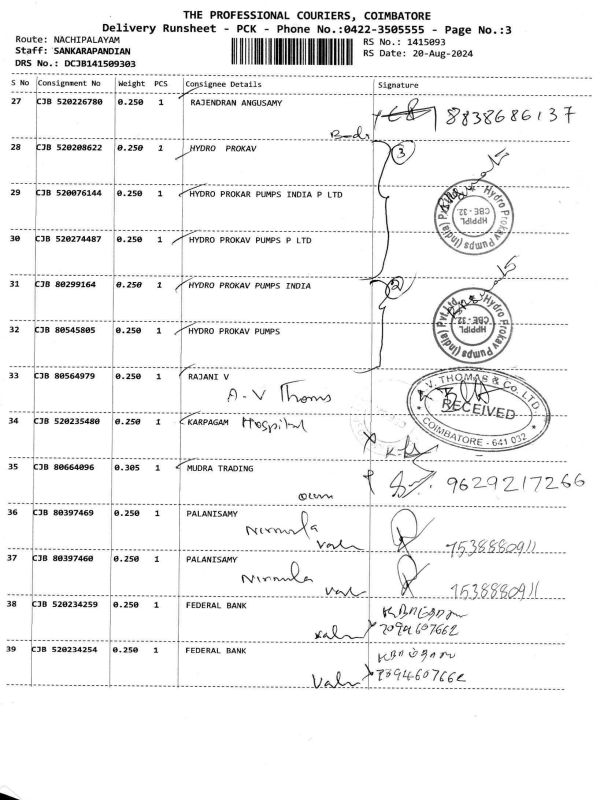 THE PROFESSIONAL COURIERS, COIMBATORE
Delivery Runsheet - PCK - Phone No.:0422-3505555 - Page No.:3
Route: NACHIPALAYAM
Staff: SANKARAPANDIAN
DRS No.: DCJB141509303
RS No.: 1415093
RS Date: 20-Aug-2024
S No Consignment No Weight PCS Consignee Details Signature
27 CJB 520226780 0.250 1 RAJENDRAN ANGUSAMY
8838686137
28 CJB 520208622 0.250 1 HYDRO PROKAV
3
29 CJB 520076144 0.250 1 HYDRO PROKAR PUMPS INDIA P LTD
Hydro Prokav Pumps (India) Pvt Ltd
HPPIPL
CBE - 32
30 CJB 520274487 0.250 1 HYDRO PROKAV PUMPS P LTD
31 CJB 80299164 0.250 1 HYDRO PROKAV PUMPS INDIA
2
32 CJB 80545805 0.250 1 HYDRO PROKAV PUMPS
Hydro Prokav Pumps (India) Pvt Ltd
HPPIPL
CBE - 32
33 CJB 80564979 0.250 1 RAJANI V
A.V Thoms
A. V. THOMAS & Co. LTD.
RECEIVED
COIMBATORE - 641 032
34 CJB 520235480 0.250 1 KARPAGAM Hospital
35 CJB 80664096 0.305 1 MUDRA TRADING
9629217266
own
36 CJB 80397469 0.250 1 PALANISAMY
Nirmula
7538880911
37 CJB 80397460 0.250 1 PALANISAMY
Nirmula
7538880911
38 CJB 520234259 0.250 1 FEDERAL BANK
7094607662
39 CJB 520234254 0.250 1 FEDERAL BANK
7094607662